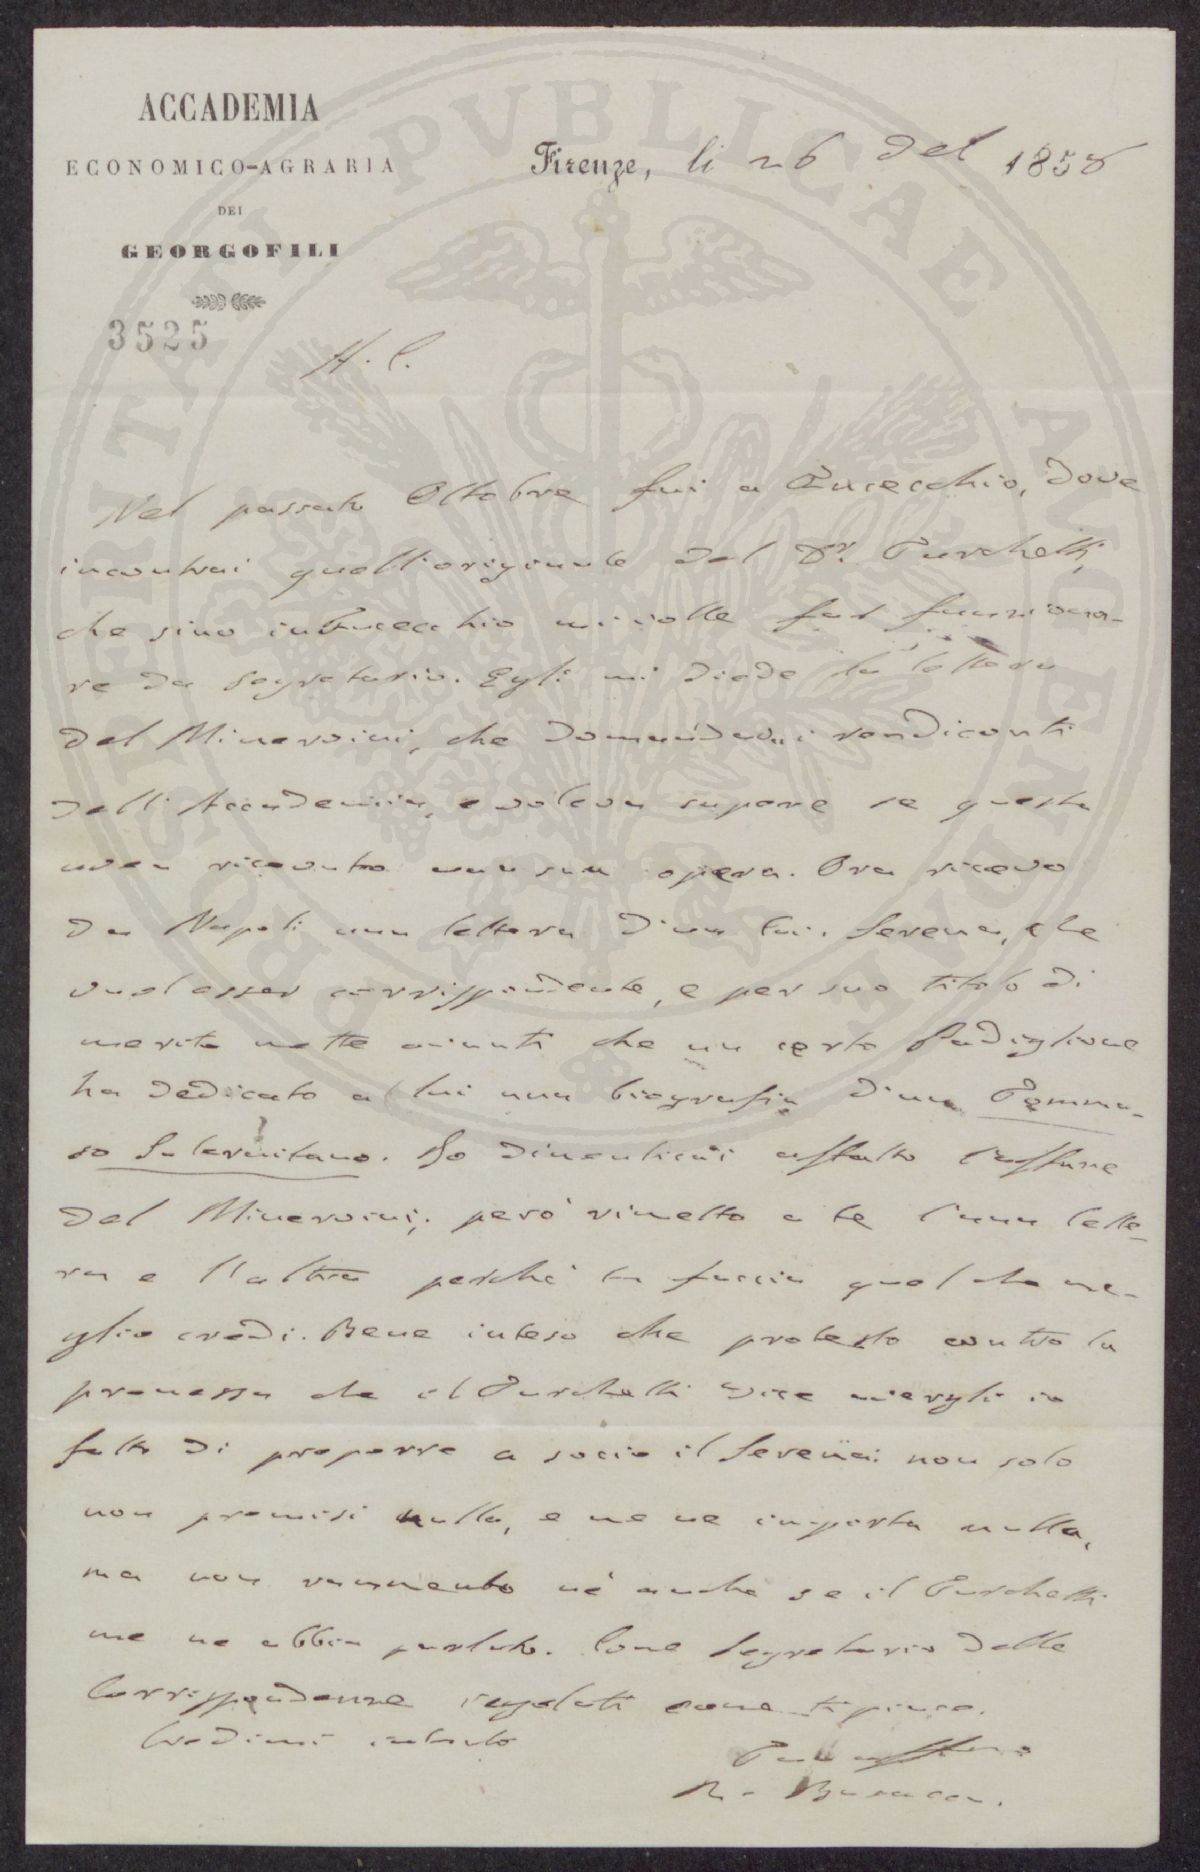 ACCADEMIA
ECONOMICO-AGRARIA
DEI
GEORGOFILI
Firenze, li 26 del 1858
3525
A. C.
Nel passato Ottobre fui a Fucecchio, dove
incontrai quell'originale del Dr. Turchetti,
che sino in Fucecchio mi volle far funziona-
re da segretario. Egli mi diede la lettera
del Minervini, che domandava i rendiconti
dell'Accademia, e voleva sapere se questa
avea ricevuto una sua opera. Ora ricevo
da Napoli una lettera d'un Serena, che
vuol esser corrispondente, e per suo titolo di
merito mette avanti che un certo Padiglione
ha dedicato a lui una biografia d'un Tomma-
so Salernitano. Io dimenticai affatto l'affare
del Minervini; però rimetto a te l'una lette-
ra e l'altra perché tu faccia quel che me-
glio credi. Bene inteso che protesto contro la
promessa che il Turchetti dice avergli io
fatto di proporre a socio il Serena: non solo
non promisi nulla, e me ne importa nulla,
ma non rammento né anche se il Turchetti
me ne abbia parlato. Come Segretario delle
Corrispondenze regolati come ti piace.
Credimi intanto
Tuo affmo
R. Busacca.
PROSPERITATI PVBLICAE AVGENDAE